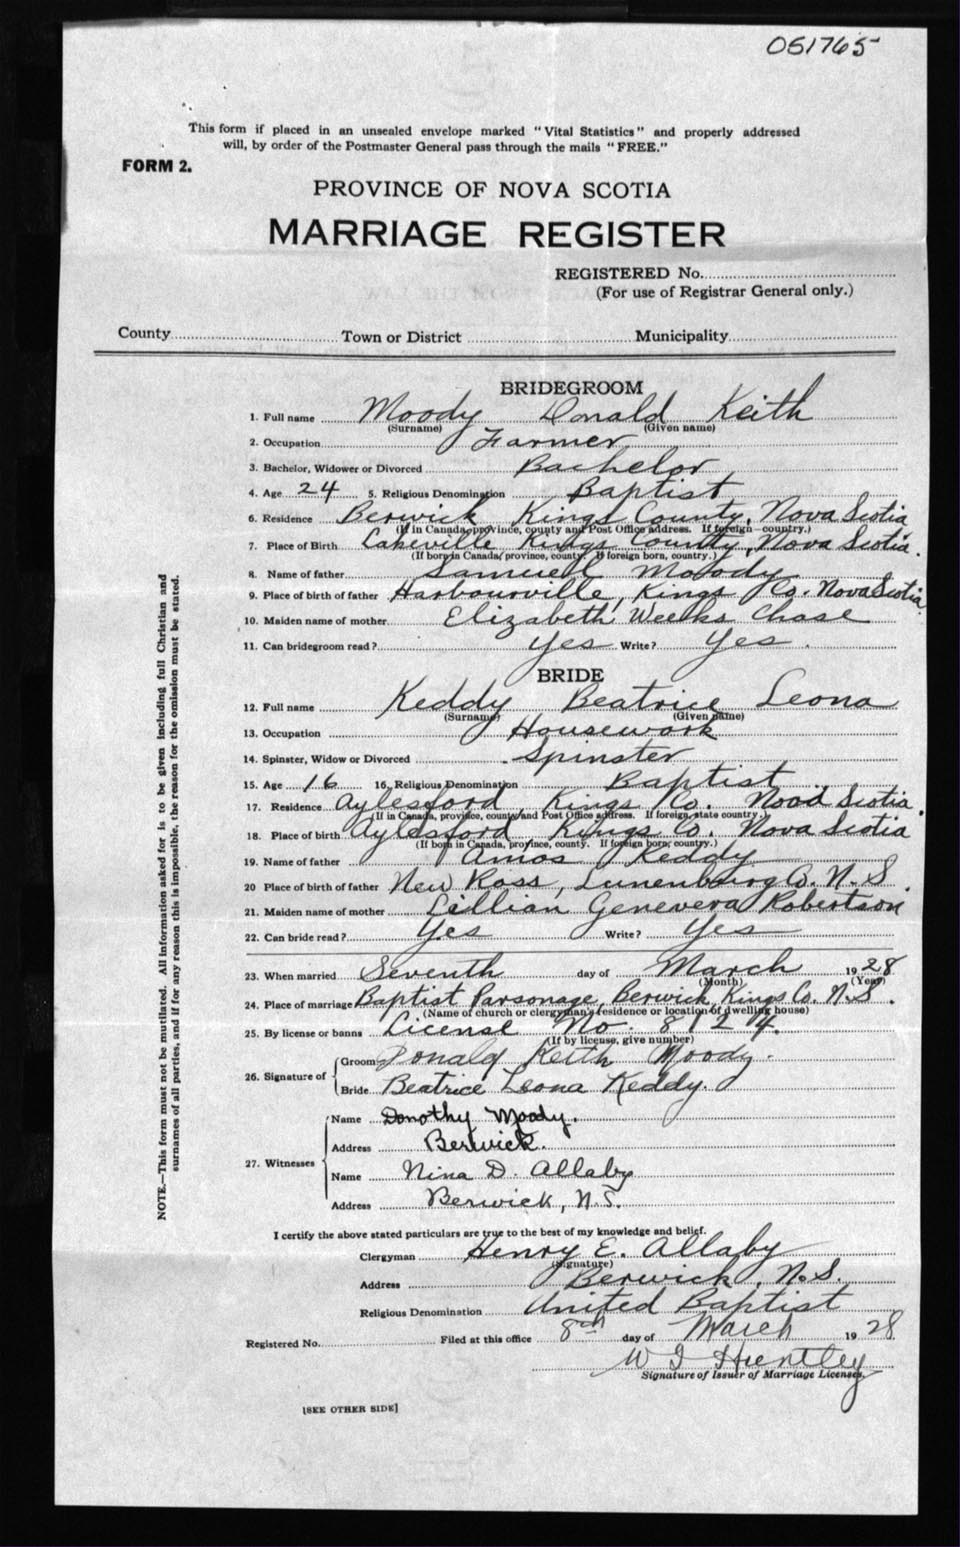 051765
This form if placed in an unsealed envelope marked "Vital Statistics" and properly addressed
will, by order of the Postmaster General pass through the mails "FREE."
FORM 2.
PROVINCE OF NOVA SCOTIA
MARRIAGE REGISTER
REGISTERED No.
(For use of Registrar General only.)
County Town or District Municipality
BRIDEGROOM
1. Full name Moody Donald Keith
(Surname) (Given name)
2. Occupation Farmer
3. Bachelor, Widower or Divorced Bachelor
4. Age 24 5. Religious Denomination Baptist
6. Residence Berwick Kings County, Nova Scotia
(If in Canada, province, county and Post Office address. If foreign—country.)
7. Place of Birth Lakeville Kings County, Nova Scotia.
(If born in Canada, province, county. If foreign born, country.)
8. Name of father Samuell Moody
9. Place of birth of father Harbourville, Kings Co. Nova Scotia
10. Maiden name of mother Elizabeth Weeks Chase
11. Can bridegroom read? Yes Write? Yes.
BRIDE
12. Full name Keddy Beatrice Leona
(Surname) (Given name)
13. Occupation Housework
14. Spinster, Widow or Divorced Spinster
15. Age 16 16. Religious Denomination Baptist
17. Residence Aylesford, Kings Co. Nova Scotia
(If in Canada, province, county and Post Office address. If foreign, state country.)
18. Place of birth Aylesford Kings Co. Nova Scotia
(If born in Canada, province, county. If foreign born, country.)
19. Name of father Amos Keddy
20 Place of birth of father New Ross, Lunenburg Co. N.S.
21. Maiden name of mother Lillian Genevera Robertson
22. Can bride read? Yes Write? Yes
23. When married Seventh day of March 1928
(Month) (Year)
24. Place of marriage Baptist Parsonage, Berwick, Kings Co. N.S.
(Name of church or clergyman's residence or location of dwelling house)
25. By license or banns License No. 81274.
(If by license, give number)
26. Signature of Groom Donald Keith Moody.
Bride Beatrice Leona Keddy.
27. Witnesses
Name Dorothy Moody.
Address Berwick.
Name Nina D. Allaby
Address Berwick, N.S.
I certify the above stated particulars are true to the best of my knowledge and belief.
Clergyman Henry E. Allaby
(Signature)
Address Berwick, N.S.
Religious Denomination United Baptist
Registered No. Filed at this office 8th day of March 1928
W J Huntley
Signature of Issuer of Marriage Licenses.
[SEE OTHER SIDE]
NOTE.—This form must not be mutilated. All information asked for is to be given including full Christian and
surnames of all parties, and if for any reason this is impossible, the reason for the omission must be stated.